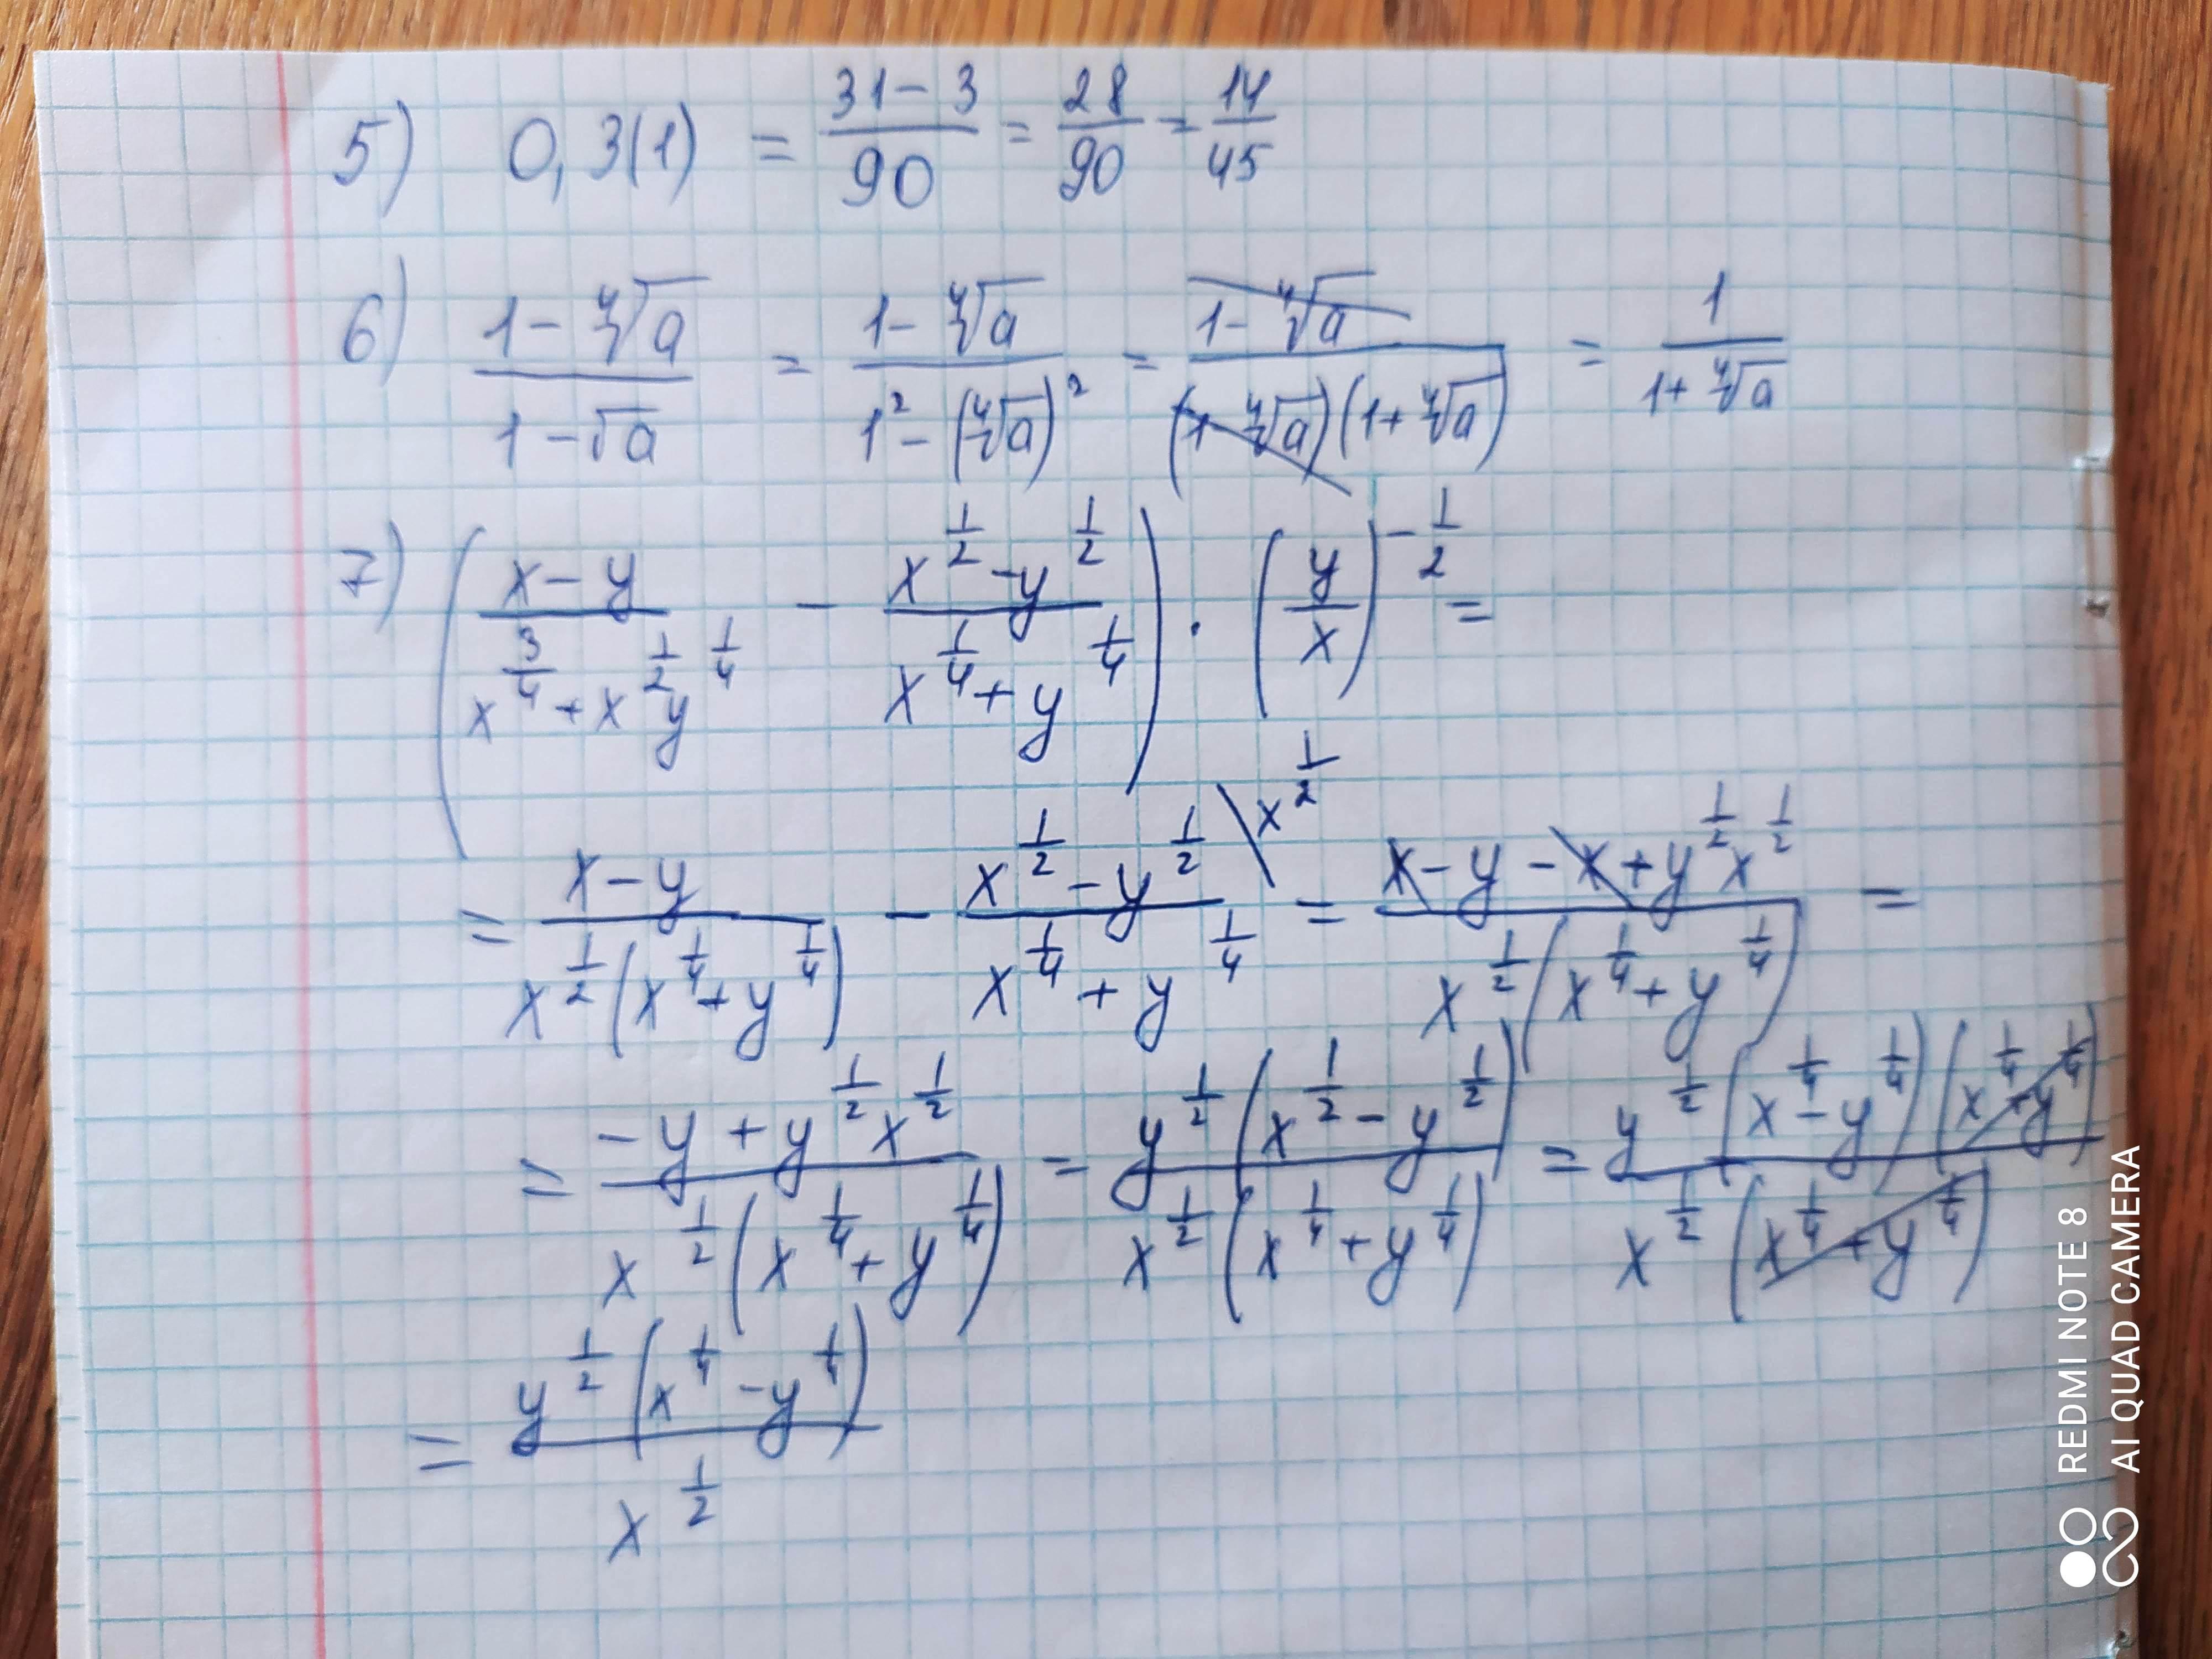 5) 0,3(1) = \frac{31-3}{90} = \frac{28}{90} = \frac{14}{45}
6) \frac{1-\sqrt[4]{a}}{1-\sqrt{a}} = \frac{1-\sqrt[4]{a}}{1^2-(\sqrt[4]{a})^2} = \frac{1-\sqrt[4]{a}}{(1-\sqrt[4]{a})(1+\sqrt[4]{a})} = \frac{1}{1+\sqrt[4]{a}}
7) \left(\frac{x-y}{x^{\frac{3}{4}}+x^{\frac{1}{2}}y^{\frac{1}{4}}} - \frac{x^{\frac{1}{2}}-y^{\frac{1}{2}}}{x^{\frac{1}{4}}+y^{\frac{1}{4}}}\right) \cdot \left(\frac{y}{x}\right)^{-\frac{1}{2}} =
= \frac{x-y}{x^{\frac{1}{2}}(x^{\frac{1}{4}}+y^{\frac{1}{4}})} - \frac{x^{\frac{1}{2}}-y^{\frac{1}{2}}}{x^{\frac{1}{4}}+y^{\frac{1}{4}}} \backslash x^{\frac{1}{2}} = \frac{x-y-x+y^{\frac{1}{2}}x^{\frac{1}{2}}}{x^{\frac{1}{2}}(x^{\frac{1}{4}}+y^{\frac{1}{4}})} =
= \frac{-y+y^{\frac{1}{2}}x^{\frac{1}{2}}}{x^{\frac{1}{2}}(x^{\frac{1}{4}}+y^{\frac{1}{4}})} = \frac{y^{\frac{1}{2}}(x^{\frac{1}{2}}-y^{\frac{1}{2}})}{x^{\frac{1}{2}}(x^{\frac{1}{4}}+y^{\frac{1}{4}})} = \frac{y^{\frac{1}{2}}(x^{\frac{1}{4}}-y^{\frac{1}{4}})(x^{\frac{1}{4}}+y^{\frac{1}{4}})}{x^{\frac{1}{2}}(x^{\frac{1}{4}}+y^{\frac{1}{4}})}
= \frac{y^{\frac{1}{2}}(x^{\frac{1}{4}}-y^{\frac{1}{4}})}{x^{\frac{1}{2}}}
REDMI NOTE 8
AI QUAD CAMERA